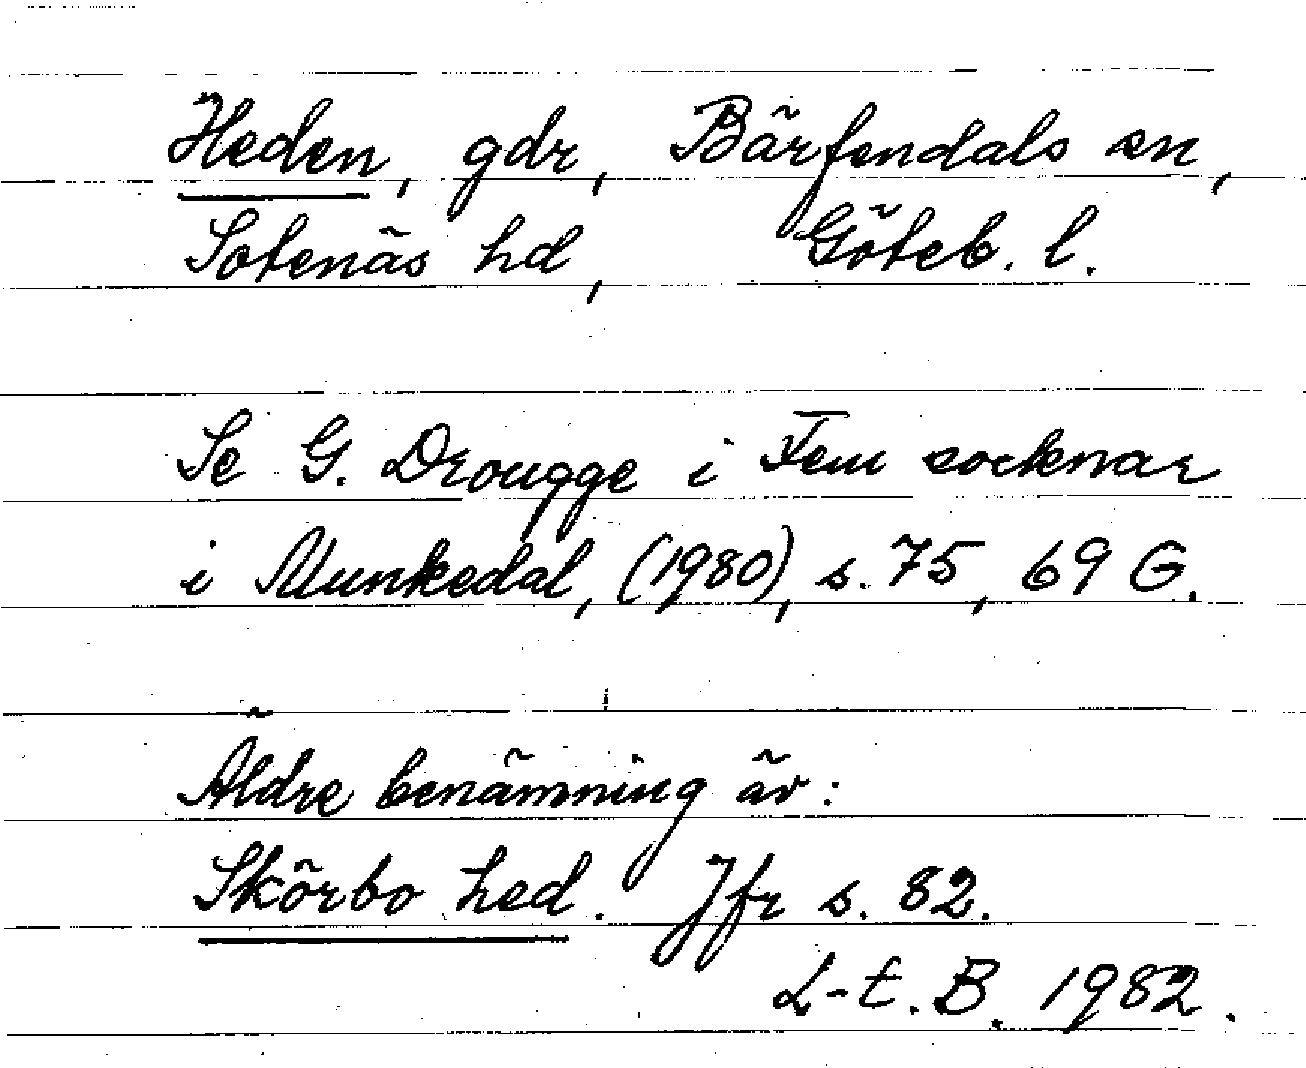 Heden, gdr, Bärfendals sn,
Sotenäs hd, Göteb. l.
Se G. Drougge i Fem socknar
i Munkedal, (1980), s. 75, 69 G.
Äldre benämning är:
Skörbo hed. Jfr s. 82.
L-E. B. 1982.